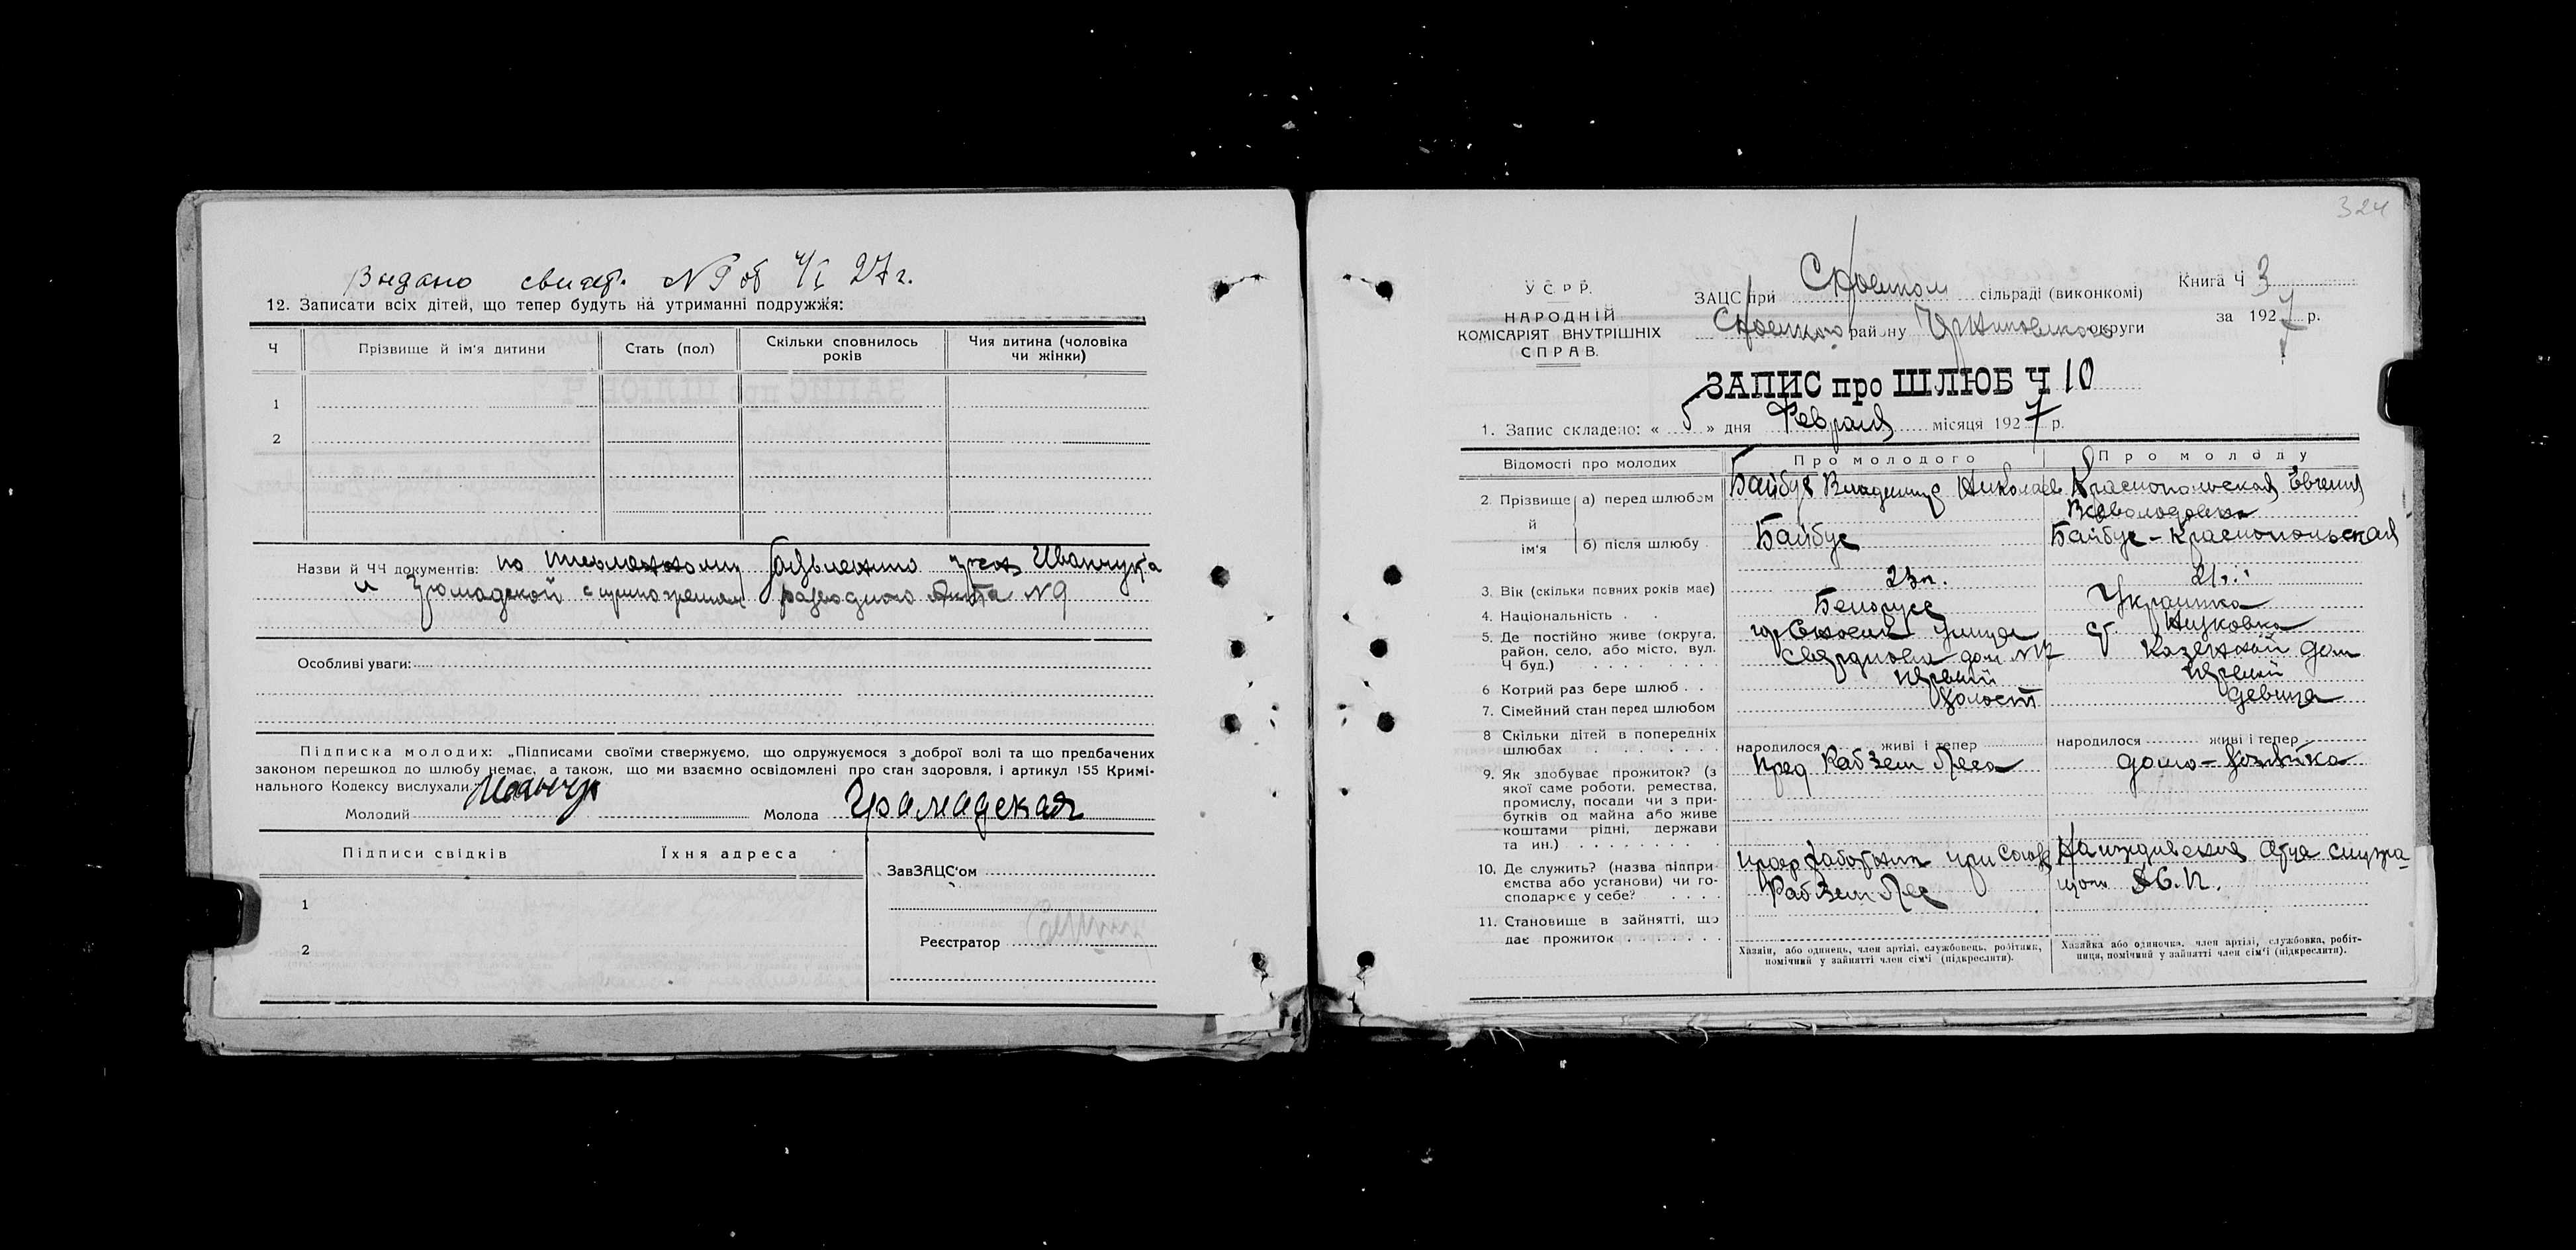 Видано свидет. N 9 об 4/I 27 г.
12. Записати всіх дітей, що тепер будуть на утриманні подружжя:
Ч Прізвище й ім'я дитини Стать (пол) Скільки сповнилось років Чия дитина (чоловіка чи жінки)
1
2
Назви й ЧЧ документів: по письменному заявлению граж Иванчука
и Громадской с приложением разводного Акта N 9
Особливі уваги:
Підписка молодих: „Підписами своїми стверджуємо, що одружуємося з доброї волі та що предбачених
законом перешкод до шлюбу немає, а також, що ми взаємно освідомлені про стан здоровля, і артикул 155 Кримі-
нального Кодексу вислухали."
Молодий Иванчук Молода Грамадская
Підписи свідків Їхня адреса
1
2
ЗавЗАЦС'ом
Реєстратор
324
У С Р Р.
НАРОДНІЙ
КОМІСАРІЯТ ВНУТРІШНІХ
СПРАВ.
ЗАЦС при Сновском сільраді (виконкомі)
Сновского району Черниговского округи
Книга Ч 3
за 1927 р.
ЗАПИС про ШЛЮБ Ч 10
1. Запис складено: « 5 » дня Февраля місяця 1927 р.
Відомості про молодих Про молодого Про молоду
2. Прізвище й ім'я а) перед шлюбом Байбус Владимир Николаев Краснопольская Евгения
Всеволодовна
б) після шлюбу Байбус Байбус-Краснопольская
3. Вік (скільки повних років має) 23 л. 21
4. Національність Белорусс Украинка
5. Де постійно живе (округа, район, село, або місто, вул. Ч буд.) гор Сновск улица
Свердлова дом N 17 Казенный дом
6 Котрий раз бере шлюб первый первый
7. Сімейний стан перед шлюбом холост девица
8 Скільки дітей в попередніх шлюбах народилося живі і тепер народилося живі і тепер
9. Як здобуває прожиток? (з якої саме роботи, ремества, промислу, посади чи з прибутків од майна або живе коштами рідні, держави та ин.) пред РабЗемЛеса домо-хозяйка
10. Де служить? (назва підприємства або установи) чи господарює у себе? проф работник при Союзе
РабЗемЛес На иждивении Отца
11. Становище в зайнятті, що дає прожиток
Хазяїн, або одинець, член артілі, службовець, робітник, помічний у зайнятті член сім'ї (підкреслити).
Хазяйка або одиночка, член артілі, службовка, робітниця, помічний у зайнятті член сім'ї (підкреслити).